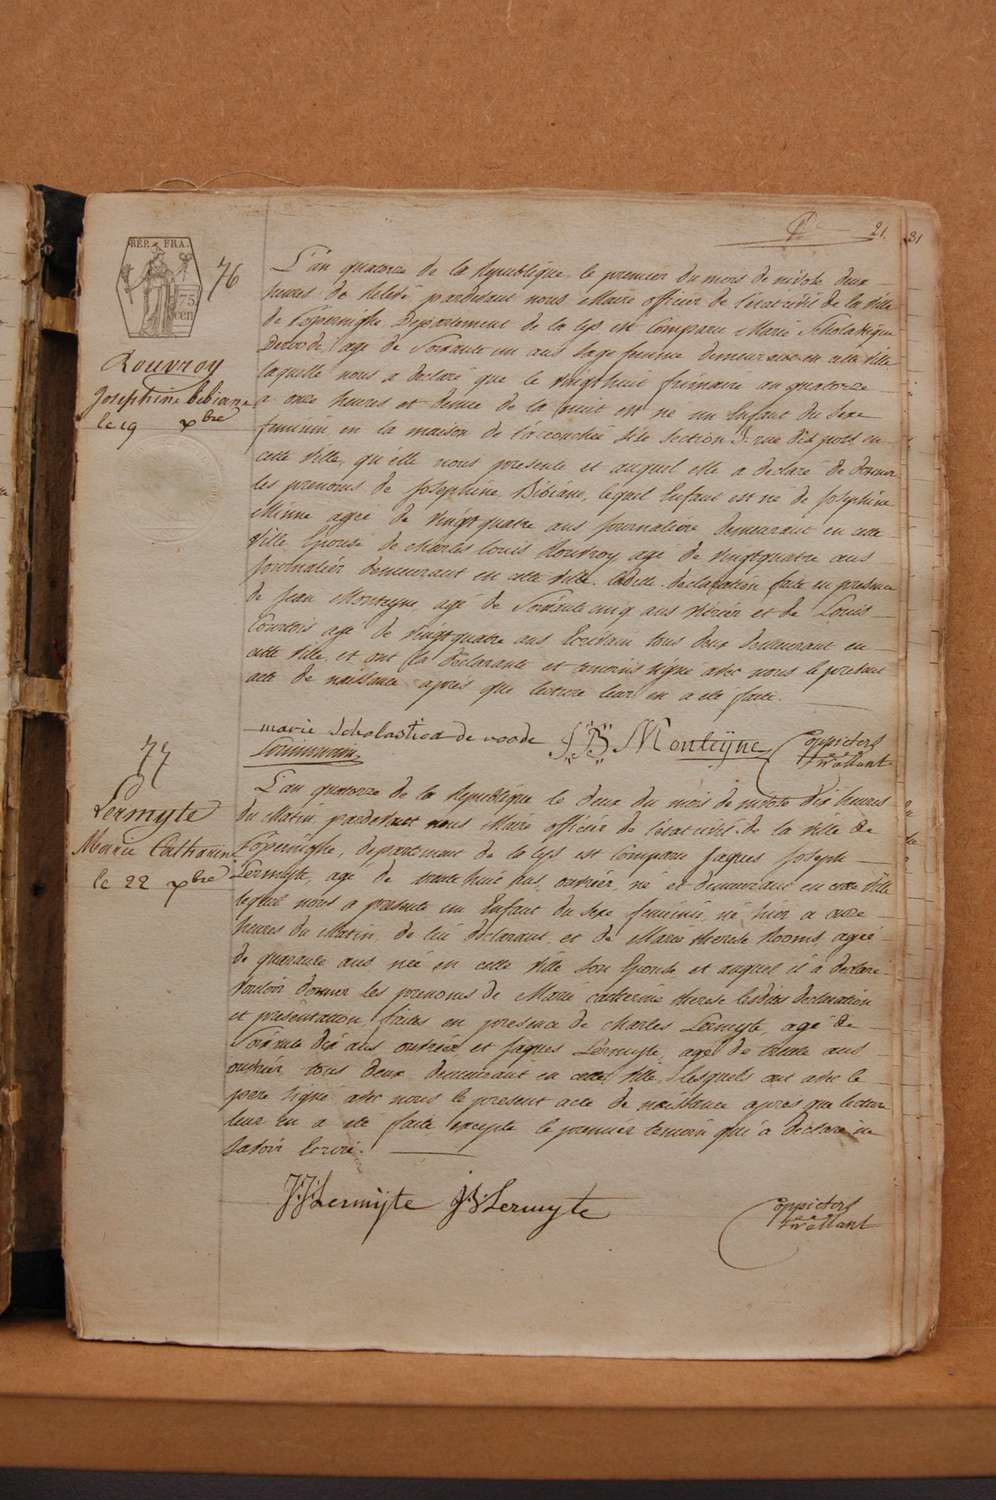 21.
31
REP. FRA.
75
cen
76
Rouvroy
Josephine bibiane
le 19 xbre
L'an quatorze de la Republique le premier du mois de nivose deux
heures de relevé pardevant nous Maire officier de l'etat civil de la ville
de Poperinghe, Departement de la Lys est Comparu Marie Scholastique
Devoode agé de Soixante un ans Sage femme demeurant en cette ville
laquelle nous a declaré que le vingt huit frimaire an quatorze
a onze heures et demie de la nuit est né un Enfant du Sexe
feminin en la maison de l'accouchée Sise Section D. rue des pots en
cette ville, qu'elle nous presente et auquel elle a declaré de donner
les prenoms de Josephine Bibiane, lequel Enfant est né de Josephine
Minne ageé de vingt quatre ans Journaliere demeurant en cette
ville Epouse de Charles Louis Rouvroy agé de vingt quatre ans
Journalier demeurant en cette ville. Ladite declaration faite en presence
de Jean Monteyne, agé de Soixante cinq ans et de Louis
Courtois agé de vingt quatre ans Ecrivain tous deux demeurant en
cette ville, et ont la declarante et temoins signé avec nous le present
acte de naissance après que lecture leur en a eté faite.
marie scholastica de voode J:B: Monteyne
77
Lermyte
Marie Catharine
le 22 xbre
L'an quatorze de la Republique le deux du mois de nivose dix heures
du Matin pardevant nous Maire officier de l'etat civil de la ville de
Poperinghe, departement de la Lys est Comparu Jaques Joseph
Lermyte, agé de trente huit ans, ouvrier, né et demeurant en cette ville
lequel nous a presenté un Enfant du Sexe feminin, né hier a onze
heures du Matin, de lui declarant et de Marie therese Rooms, ageé
de quarante ans née en cette ville Son Epouse et auquel il a declaré
vouloir donner les prenoms de Marie catherine therese lesdites declaration
et presentation faites en presence de Charles Lermyte agé de
Soixante dix ans ouvrier et Jaques Lermyte, agé de trente ans
ouvrier tous deux demeurant en cette ville, lesquels ont avec le
pere Signé avec nous le present acte de naissance apres que lecture
leur en a eté faite excepté le premier temoin qui a declaré ne
Savoir Ecrire.
J:J:Lermijte J:B:Lermyte